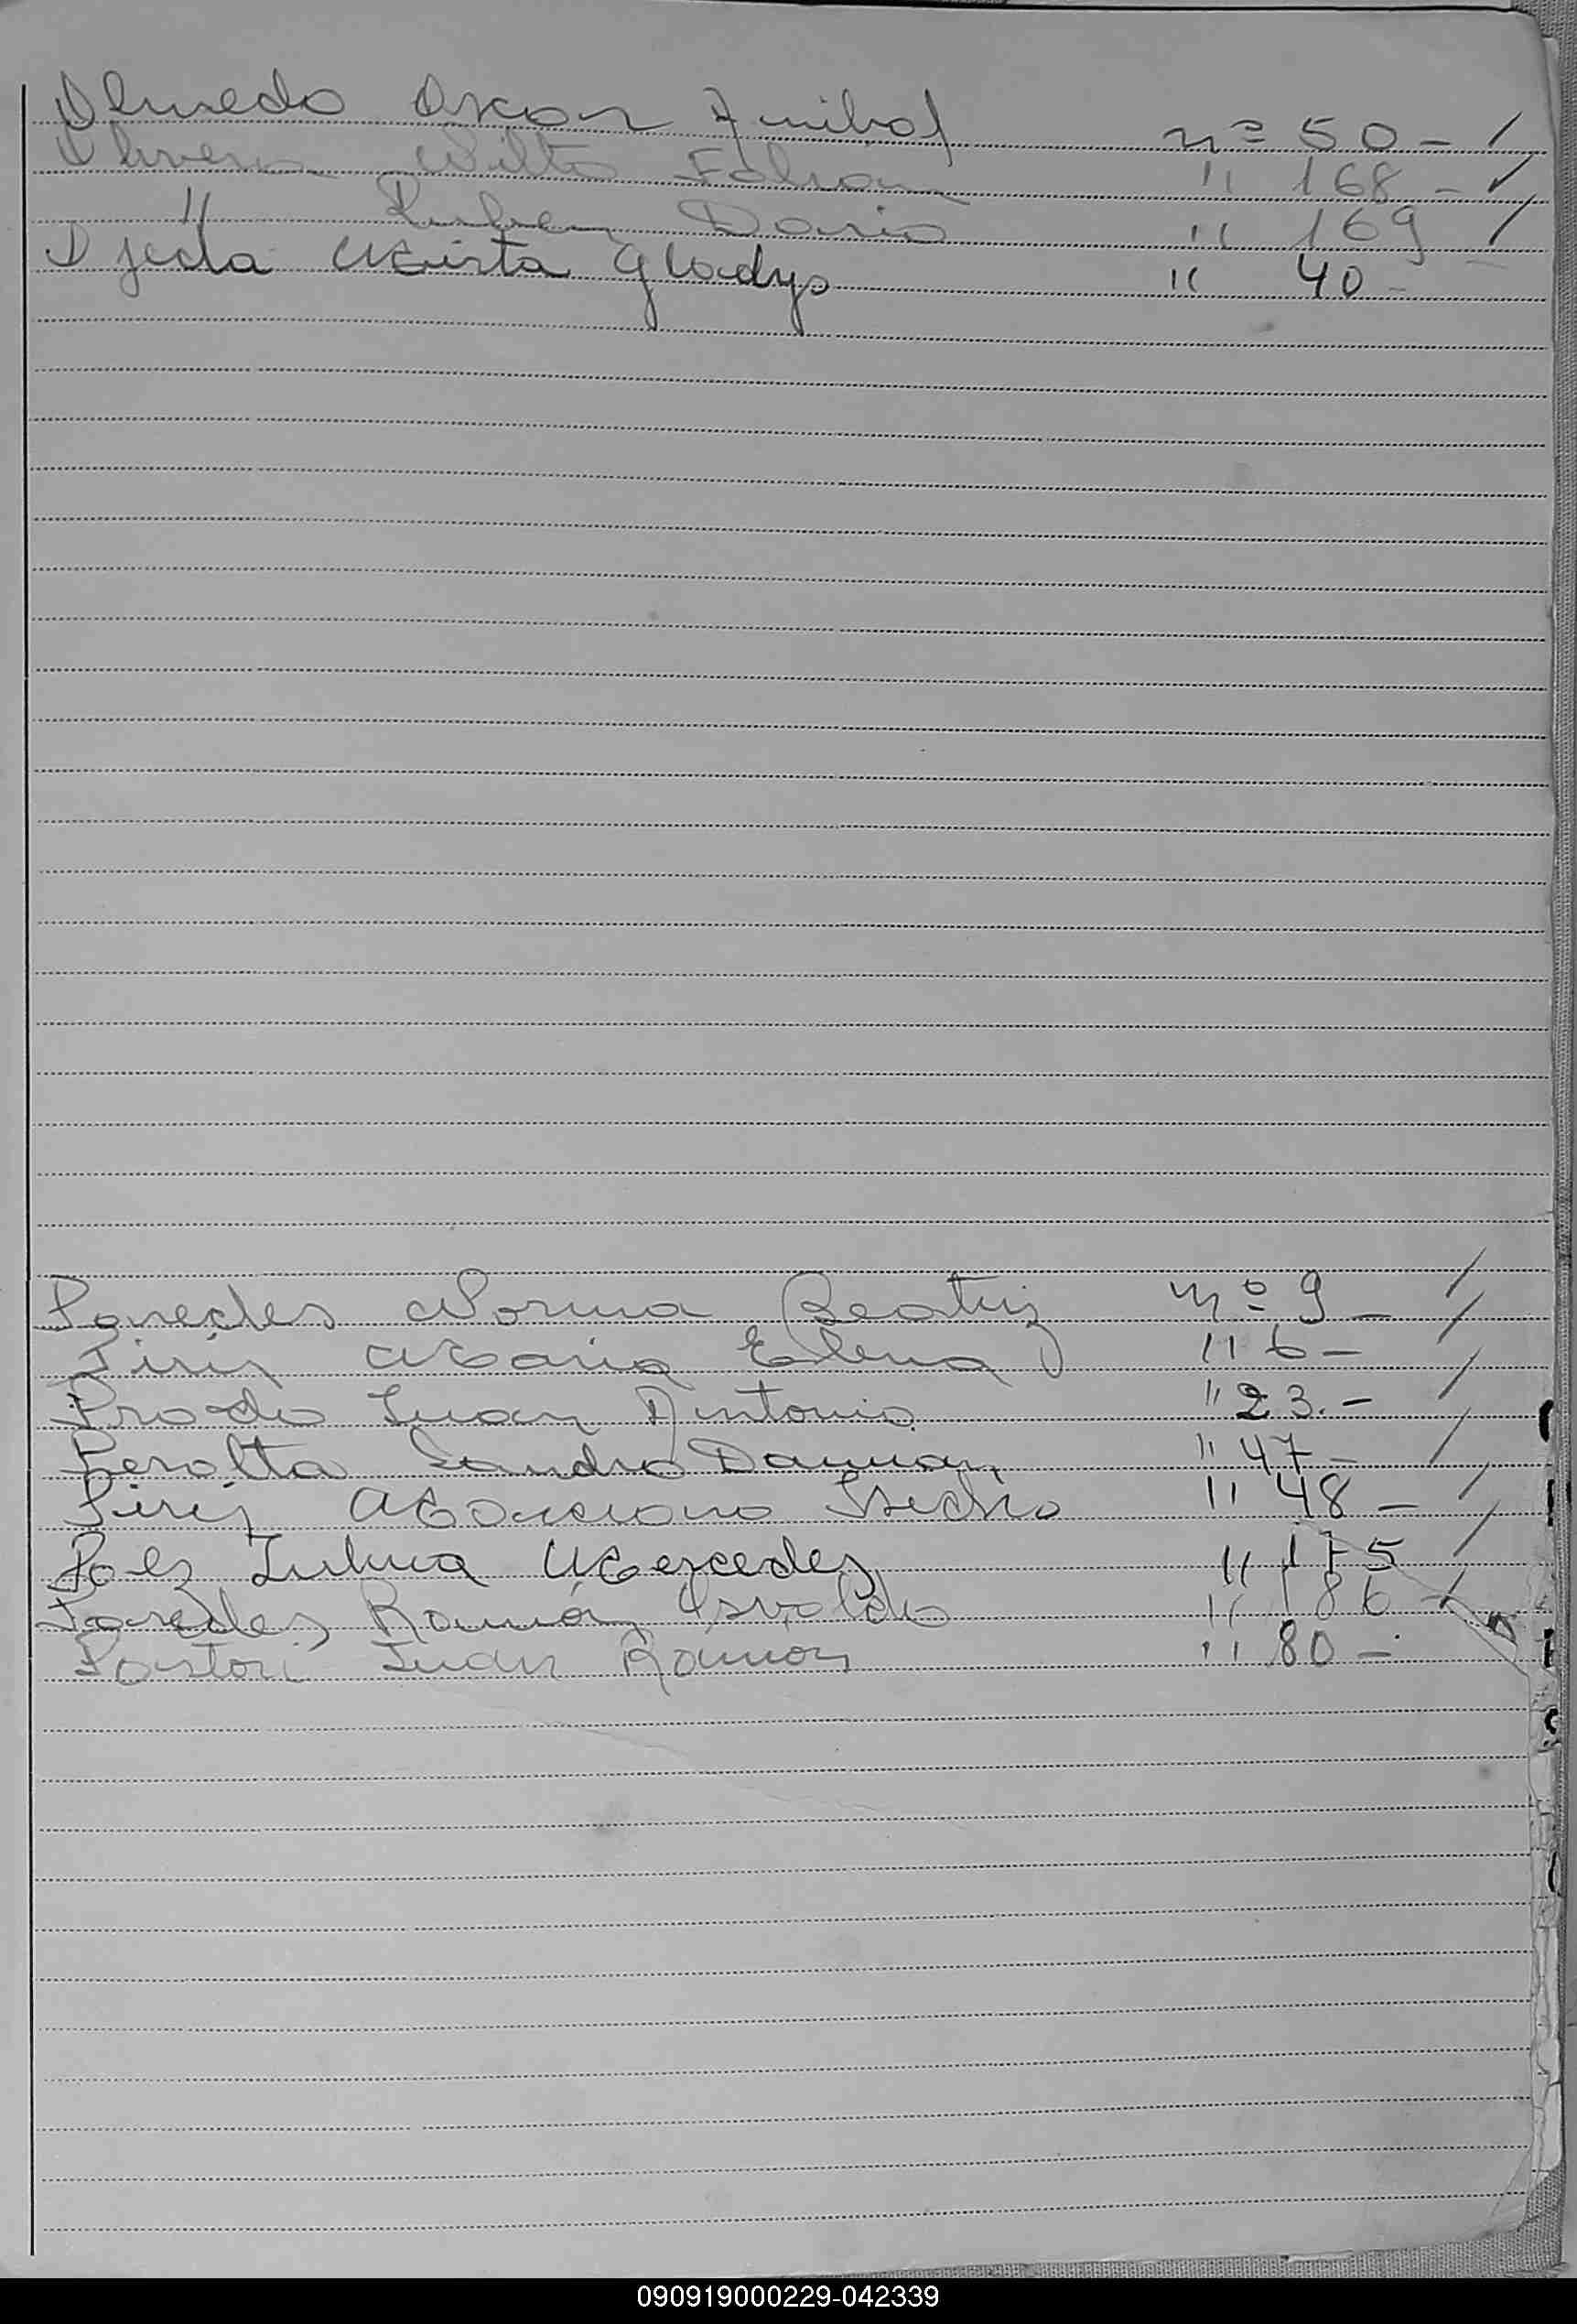 Olmedo Oscar Anibal nº 50 - /
Olivera Nilto Fabian " 168 - /
" Ruben Dario " 169 - /
Ojeda Mirta Gladys " 40 -
Paredes Norma Beatriz nº 9 - /
Piris Maria Elena " 6 - /
Prado Juan Antonio " 23.- /
Peralta Sandro Damian " 47 - /
Piris Marciano Isidro " 48 - /
Paez Mercedes " 175 /
Paredes Ramón Osvaldo " 186 - /
Pastori Juan Ramón " 80 -
090919000229-042339